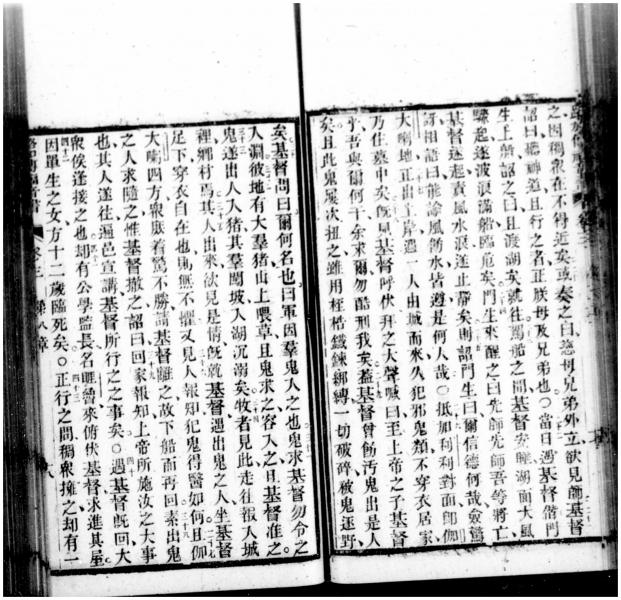 之因稠眾在不得近矣或奏之曰慈母兄弟外立欲見師基督
詔曰聽神道且行之者正朕母及兄弟也○當日遇基督偕門
生上船詔之曰且渡湖矣就往駕船之間基督安睡湖面大風
驟起遂波浪滿船臨危矣門生來醒之曰先師先師吾等將亡
基督遂起責風水浪遂止靜矣則詔門生曰爾信德何哉僉驚
訝相語曰能諭風飭水皆遵是何人哉○抵加利利對面即伽
大喇地正出上岸遇一人由城而來久犯邪鬼類不穿衣居家
乃住墓中矣旣見基督呼伏拜之大聲喊曰至上帝之子基督
乎吾與爾何干矣求爾勿酷刑我矣蓋基督曾飭汚鬼出是人
矣且此鬼屢次扭之雖用桎梏鐵鍊綁縛一切破碎被鬼逐野
矣基督問曰爾何名也曰軍因羣鬼入之也鬼求基督勿令之
入淵彼地有大羣猪山上喂草且鬼求之容入之且基督准之
鬼遂出人入猪其羣闖坡入湖沉溺矣牧者見此走往報入城
裡鄉村焉其人出來欲見是情旣就基督遇出鬼之人坐基督
足下穿衣自在也則無不懼又見人報知犯鬼得醫如何且伽
大喇四方眾厥着驚不勝請基督離之故下船而再回素出鬼
之人求隨之惟基督撤之詔曰回家報知上帝所施汝之大事
也其人遂往遍邑宣講基督所行之之事矣○遇基督旣回大
眾俟逢接之也却有公學監長名睚魯來俯伏基督求進其屋
因單生之女方十二歲臨死矣○正行之間稠眾擁之却有一